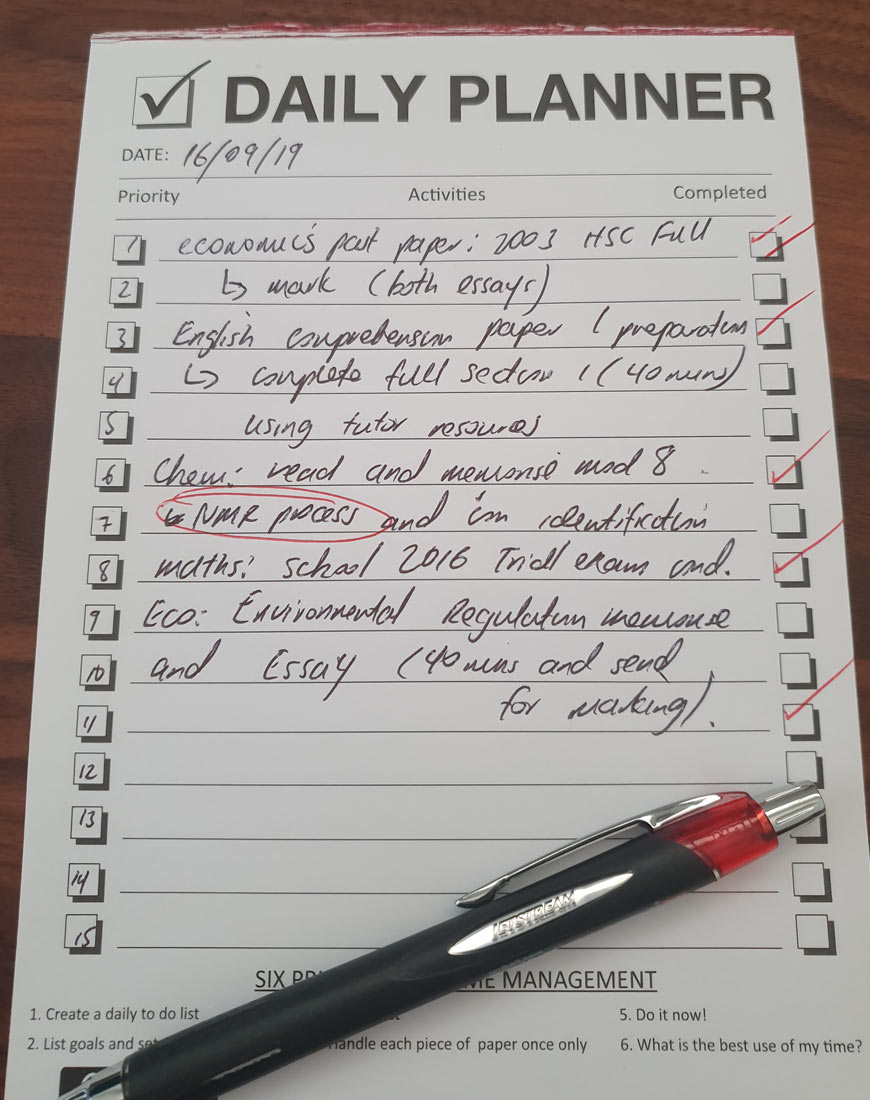 DAILY PLANNER
DATE: 16/09/19
Priority Activities Completed
1 economics past paper: 2003 HSC Full
2 ↳ mark (both essays)
3 English comprehension paper 1 preparation
4 ↳ complete full section 1 (40 mins)
5 using tutor resources
6 Chem: read and memorise mod 8.
7 ↳ NMR process and ion identification
8 maths: school 2016 Trial exam cond.
9 Eco: Environmental Regulation memorise
10 and Essay (40 mins and send
11 for marking).
12
13
14
15
JETSTREAM
SIX MANAGEMENT
1. Create a daily to do list 5. Do it now!
2. List goals and each piece of paper once only 6. What is the best use of my time?